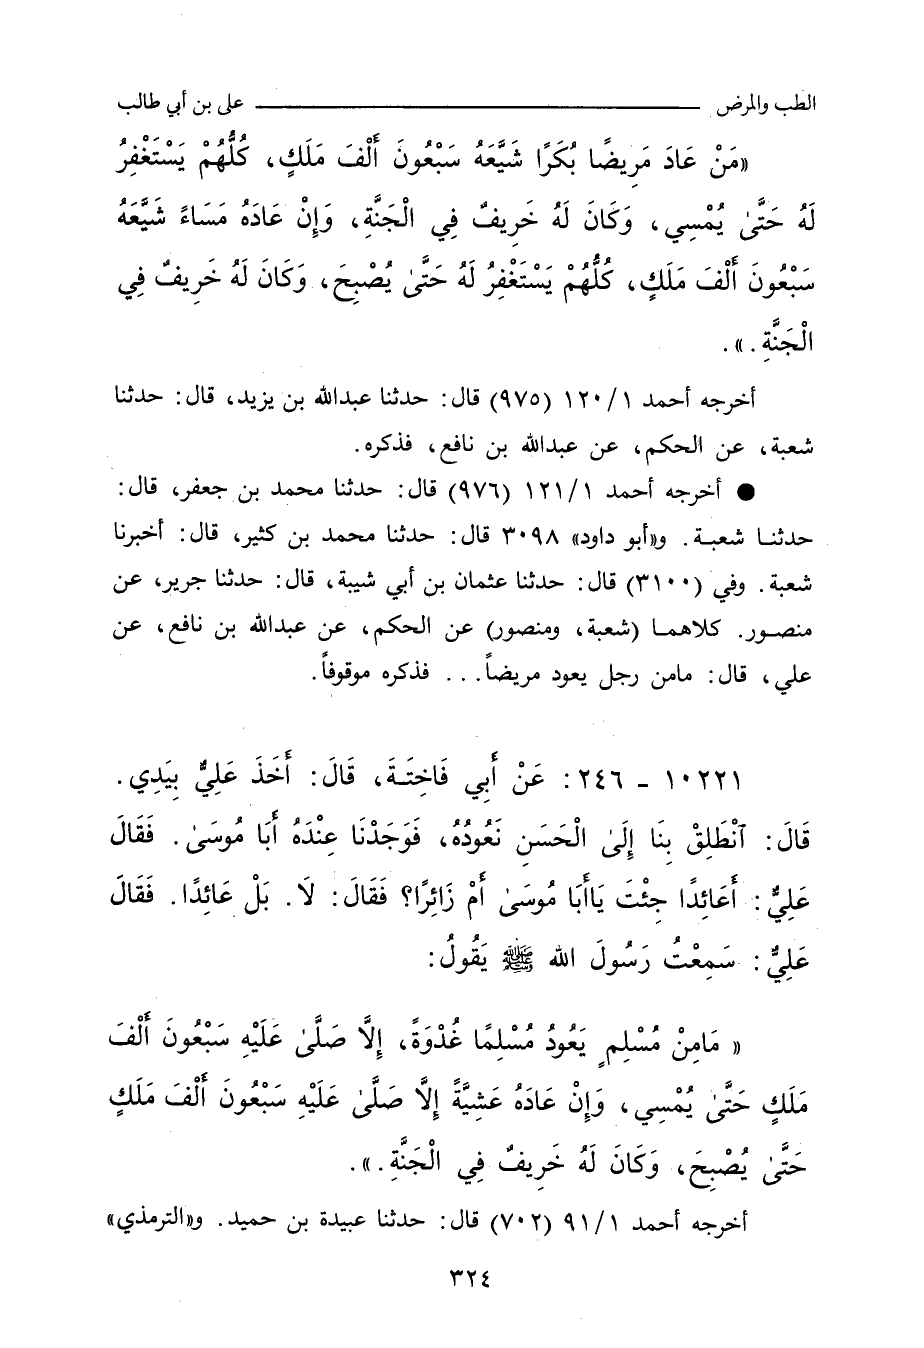 الطب والمرض ـــــــــــــــ على بن أبي طالب
«مَنْ عَادَ مَرِيضًا بُكَرًا شَيَّعَهُ سَبْعُونَ أَلْفَ مَلَكٍ، كُلُّهُمْ يَسْتَغْفِرُ
لَهُ حَتَّىٰ يُمْسِي، وَكَانَ لَهُ خَرِيفٌ فِي الْجَنَّةِ، وَإِنْ عَادَهُ مَسَاءً شَيَّعَهُ
سَبْعُونَ أَلْفَ مَلَكٍ، كُلُّهُمْ يَسْتَغْفِرُ لَهُ حَتَّىٰ يُصْبِحَ، وَكَانَ لَهُ خَرِيفٌ فِي
الْجَنَّةِ.».
أخرجه أحمد ١/ ١٢٠ (٩٧٥) قال: حدثنا عبدالله بن يزيد، قال: حدثنا
شعبة، عن الحكم، عن عبدالله بن نافع، فذكره.
● أخرجه أحمد ١/ ١٢١ (٩٧٦) قال: حدثنا محمد بن جعفر، قال:
حدثنا شعبة. و«أبو داود» ٣٠٩٨ قال: حدثنا محمد بن كثير، قال: أخبرنا
شعبة. وفي (٣١٠٠) قال: حدثنا عثمان بن أبي شيبة، قال: حدثنا جرير، عن
منصور. كلاهما (شعبة، ومنصور) عن الحكم، عن عبدالله بن نافع، عن
علي، قال: مامن رجل يعود مريضاً... فذكره موقوفاً.
١٠٢٢١ - ٢٤٦: عَنْ أَبِي فَاخِتَةَ، قَالَ: أَخَذَ عَلِيٌّ بِيَدِي.
قَالَ: ٱنْطَلِقْ بِنَا إِلَىٰ الْحَسَنِ نَعُودُهُ، فَوَجَدْنَا عِنْدَهُ أَبَا مُوسَىٰ. فَقَالَ
عَلِيٌّ: أَعَائِدًا جِئْتَ يَاأَبَا مُوسَىٰ أَمْ زَائِرًا؟ فَقَالَ: لَا. بَلْ عَائِدًا. فَقَالَ
عَلِيٌّ: سَمِعْتُ رَسُولَ الله ﷺ يَقُولُ:
« مَامِنْ مُسْلِمٍ يَعُودُ مُسْلِمًا غُدْوَةً، إِلَّا صَلَّىٰ عَلَيْهِ سَبْعُونَ أَلْفَ
مَلَكٍ حَتَّىٰ يُمْسِي، وَإِنْ عَادَهُ عَشِيَّةً إِلَّا صَلَّىٰ عَلَيْهِ سَبْعُونَ أَلْفَ مَلَكٍ
حَتَّىٰ يُصْبِحَ، وَكَانَ لَهُ خَرِيفٌ فِي الْجَنَّةِ.».
أخرجه أحمد ١/ ٩١ (٧٠٢) قال: حدثنا عبيدة بن حميد. و«الترمذي»
٣٢٤